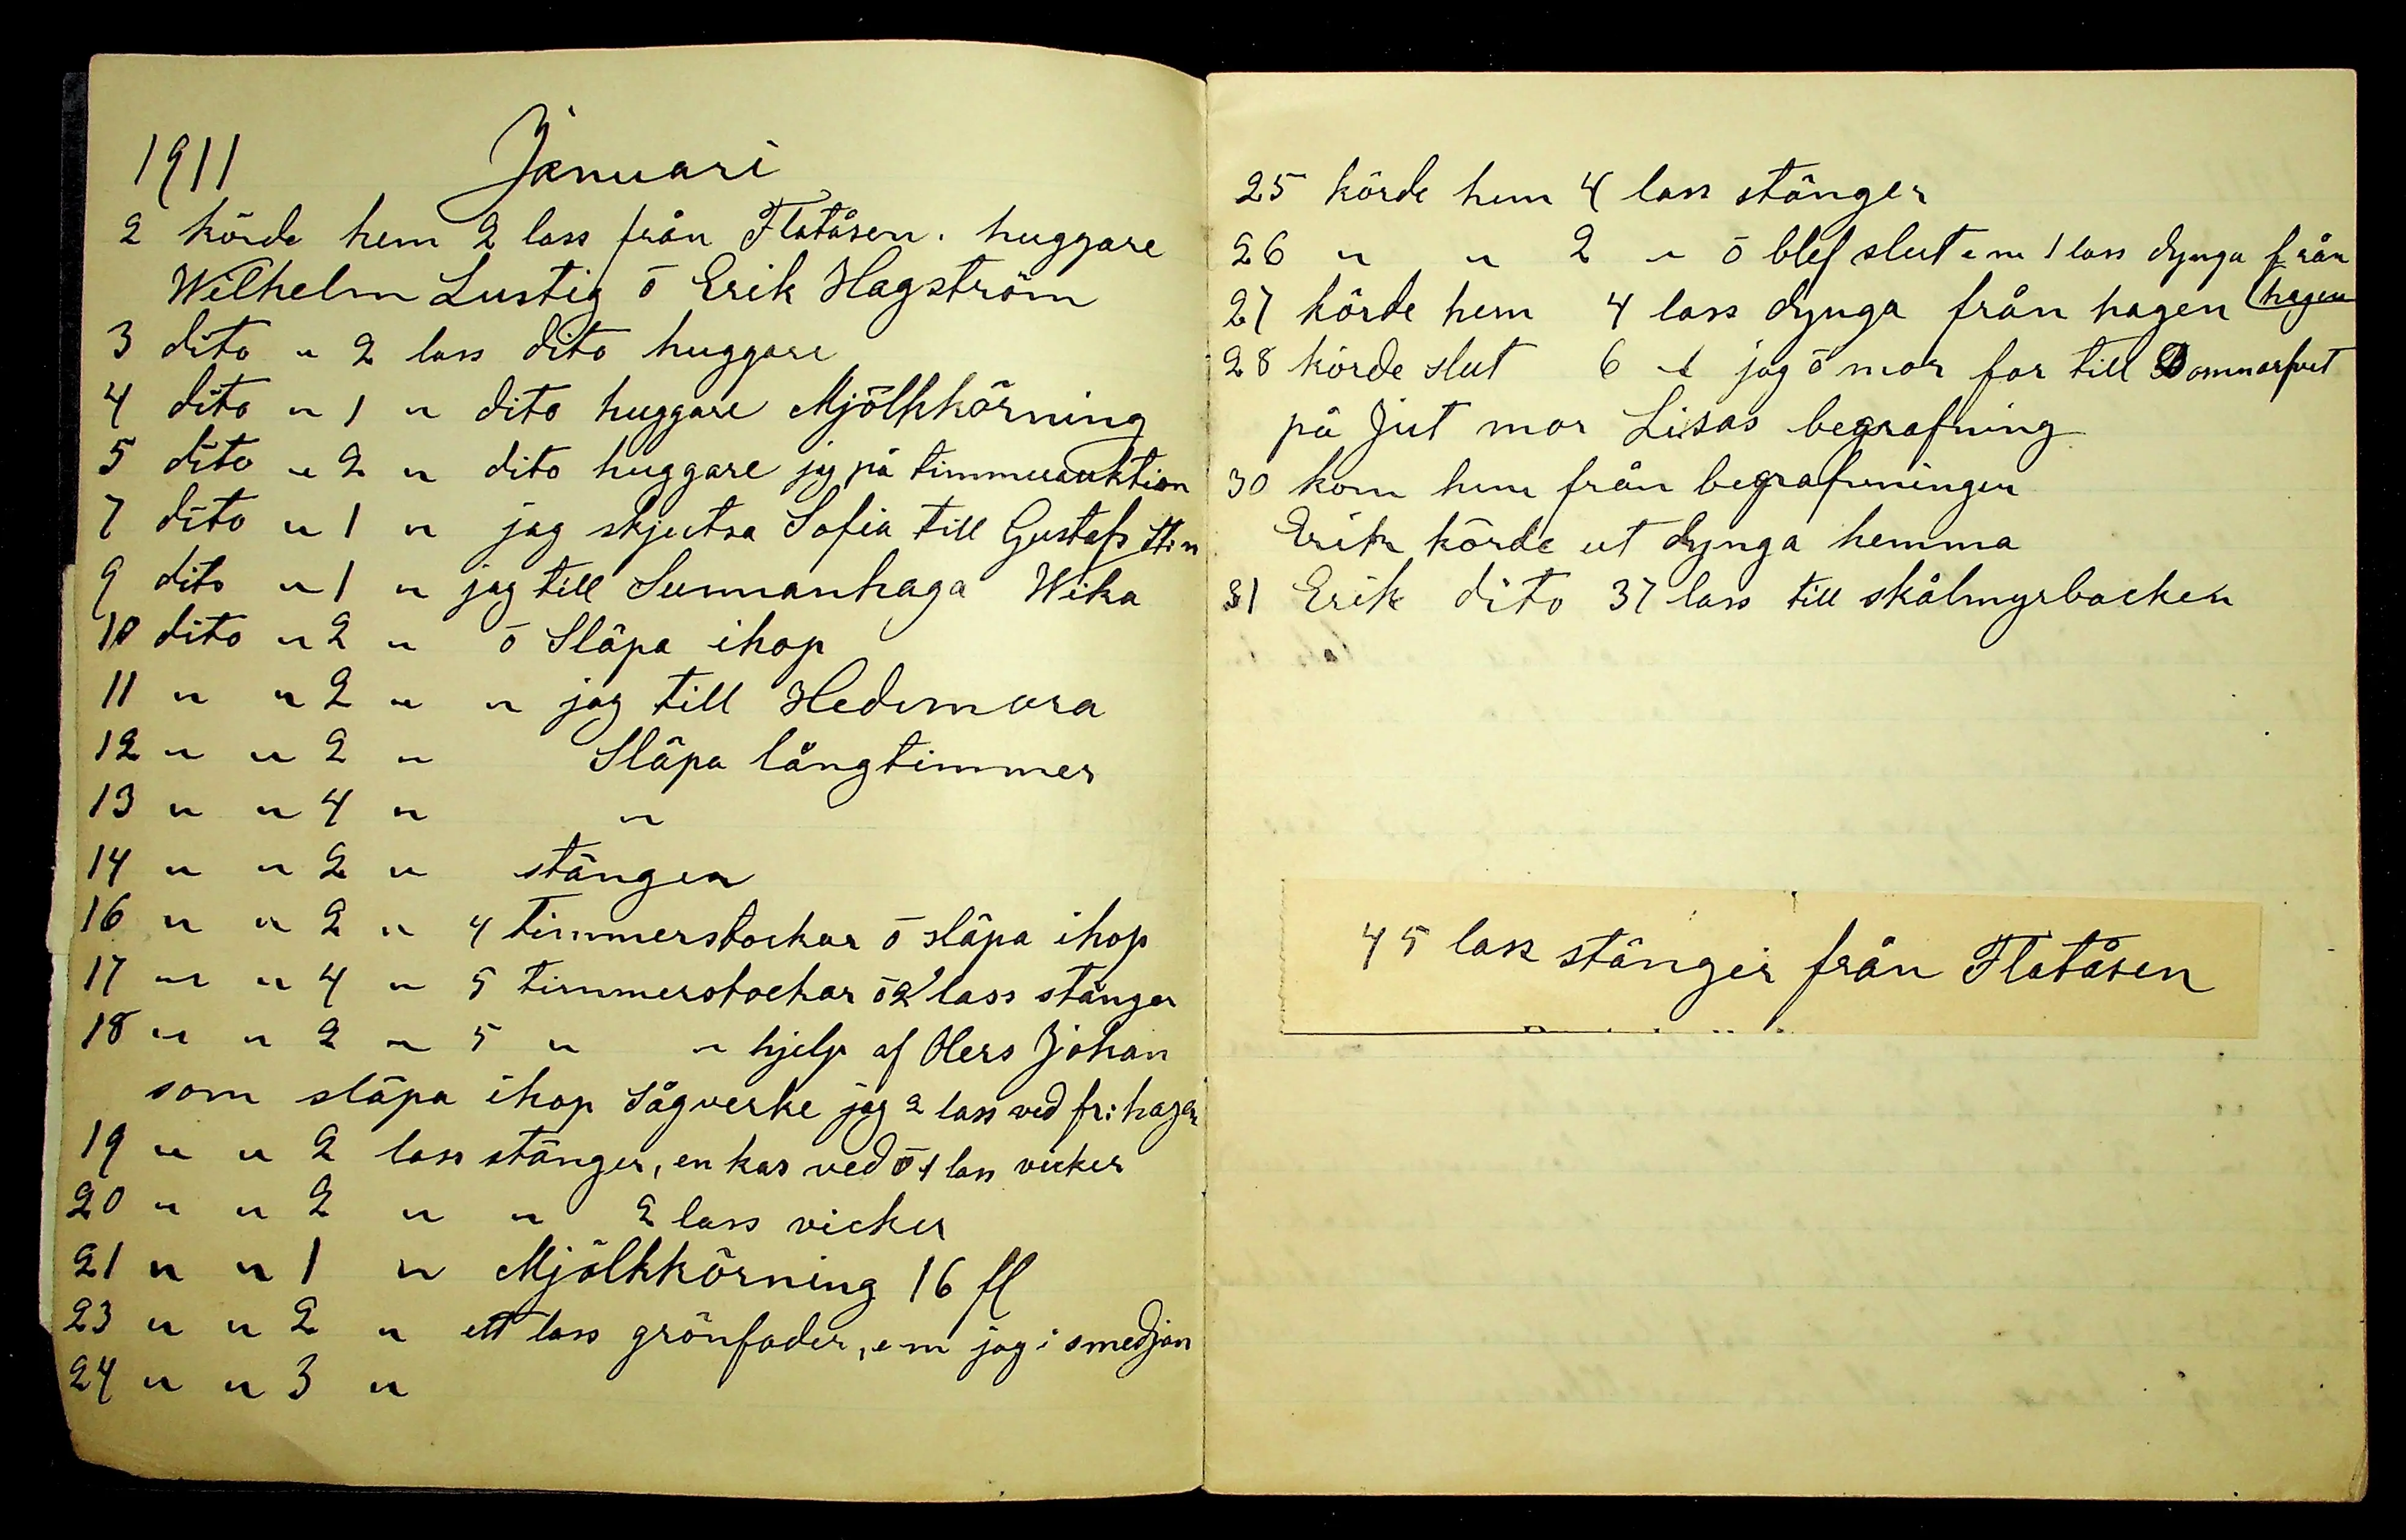 1911 Januari
2 körde hem 2 lass från Flatåsen. huggare
Wilhelm Lustig ō Erik Hagström
3 dito " 2 lass dito huggare
4 dito " 1 " dito huggare Mjölkkörning
5 dito " 2 " dito huggare jag på timmerauktion
7 dito " 1 " jag skjutsa Sofia till Gustafs
9 dito " 1 " jag till Sunnanhaga Wika
10 dito " 2 " ō Släpa ihop
11 " " 2 " " jag till Hedemora
12 " " 2 " Släpa långtimmer
13 " " 4 " "
14 " " 2 " stänger
16 " " 2 " 4 timmerstockar ō släpa ihop
17 " " 4 " 5 timmerstockar ō 2 lass stänger
18 " " 2 " 5 " " hjelp af Olers Johan
som släpa ihop Sågverke jag 2 lass ved fr: hagen
19 " " 2 lass stänger, en kas ved ō 1 lass vicker
20 " " 2 " " 2 lass vicker
21 " " 1 " Mjölkkörning 16 fl
23 " " 2 " ett lass grönfoder, em jag i smedjan
24 " " 3 "
25 körde hem 4 lass stänger
26 " " 2 " ō blef slut em 1 lass dynga från
hagen
27 körde hem 4 lass dynga från hagen
28 körde slut 6 " jag ō mor for till Dommarfvet
på Jut mor Lisas begrafning
30 kom hem från begrafningen
Erik körde ut dynga hemma
31 Erik dito 37 lass till skålmyrbacken
45 lass stänger från Flatåsen